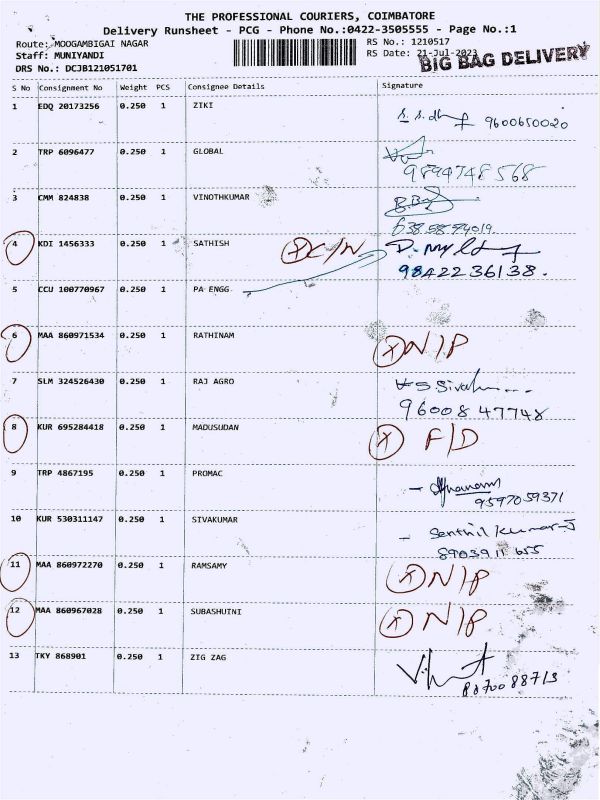 THE PROFESSIONAL COURIERS, COIMBATORE
Delivery Runsheet - PCG - Phone No.:0422-3505555 - Page No.:1
Route: MOOGAMBIGAI NAGAR RS No.: 1210517
Staff: MUNIYANDI RS Date: 21-Jul-2023
BIG BAG DELIVERY
DRS No.: DCJB121051701
S No Consignment No Weight PCS Consignee Details Signature
1 EDQ 20173256 0.250 1 ZIKI
9600650020
2 TRP 6096477 0.250 1 GLOBAL
9894748568
3 CMM 824838 0.250 1 VINOTHKUMAR
4 KDI 1456333 0.250 1 SATHISH X C/N
9842236138.
5 CCU 100770967 0.250 1 PA ENGG
6 MAA 860971534 0.250 1 RATHINAM X N/P
7 SLM 324526430 0.250 1 RAJ AGRO
9600847748
8 KUR 695284418 0.250 1 MADUSUDAN X F/D
9 TRP 4867195 0.250 1 PROMAC
9597059371
10 KUR 530311147 0.250 1 SIVAKUMAR - Senthil Kumar-J
8903911655
11 MAA 860972270 0.250 1 RAMSAMY X N/P
12 MAA 860967028 0.250 1 SUBASHUINI X N/P
13 TKY 868901 0.250 1 ZIG ZAG